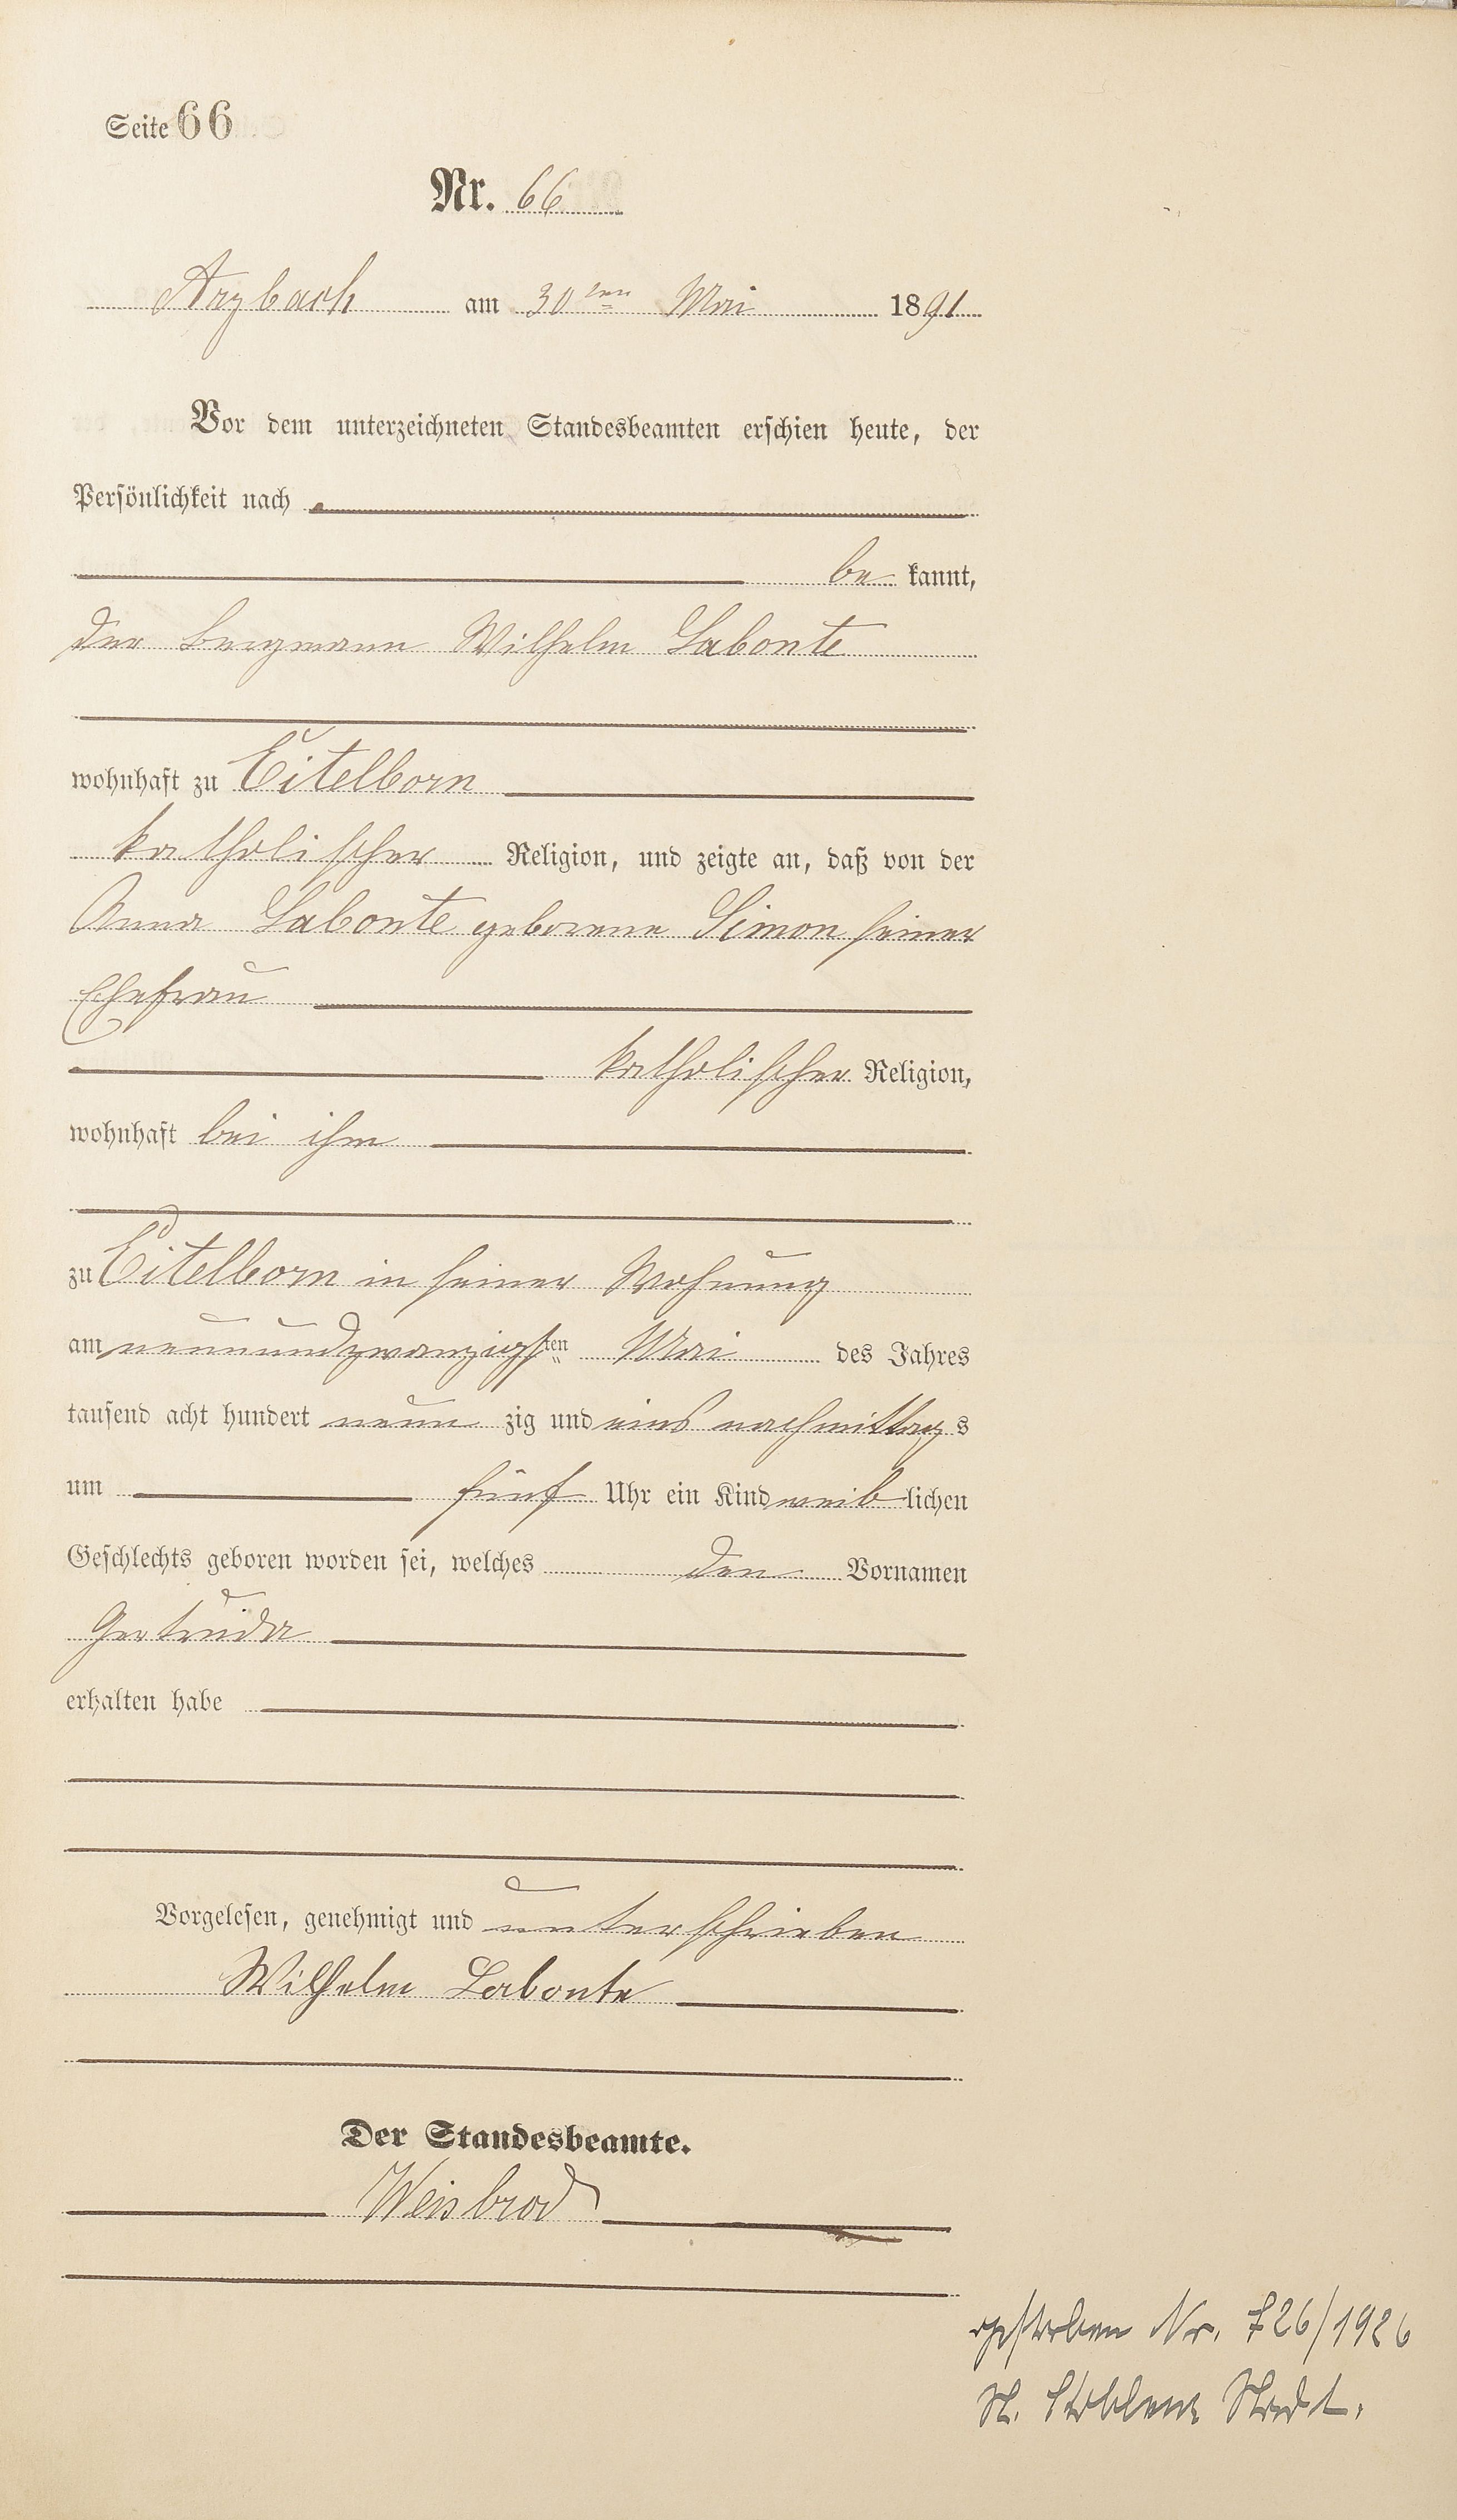 Seite 66
Nr. 66
Arzbach am 30ten Mai 1891
Vor dem unterzeichneten Standesbeamten erschien heute, der
Persönlichkeit nach
be kannt,
der Bergmann Wilhelm Labonte
wohnhaft zu Eitelborn
katholischer Religion, und zeigte an, daß von der
Anna Labonte geborene Simon seiner
Ehefrau
katholischer Religion,
wohnhaft bei ihm
zu Eitelborn in seiner Wohnung
am neunundzwanzigsten Mai des Jahres
tausend acht hundert neun zig und eins nachmittags
um fünf Uhr ein Kind weiblichen
Geschlechts geboren worden sei, welches den Vornamen
Gertruda
erhalten habe
Vorgelesen, genehmigt und unterschrieben
Wilhelm Labonte
Der Standesbeamte.
Weisbrod
gestorben Nr. 726/1926
St. Koblenz Stadt.